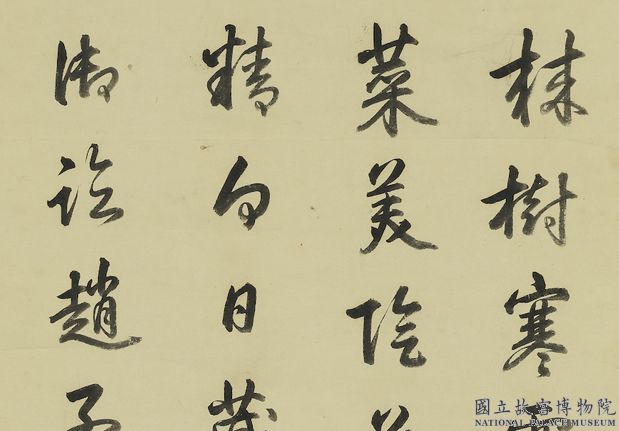 棘樹寒
菜美陰
精白日
御詮趙子
國立故宮博物院
NATIONAL PALACE MUSEUM